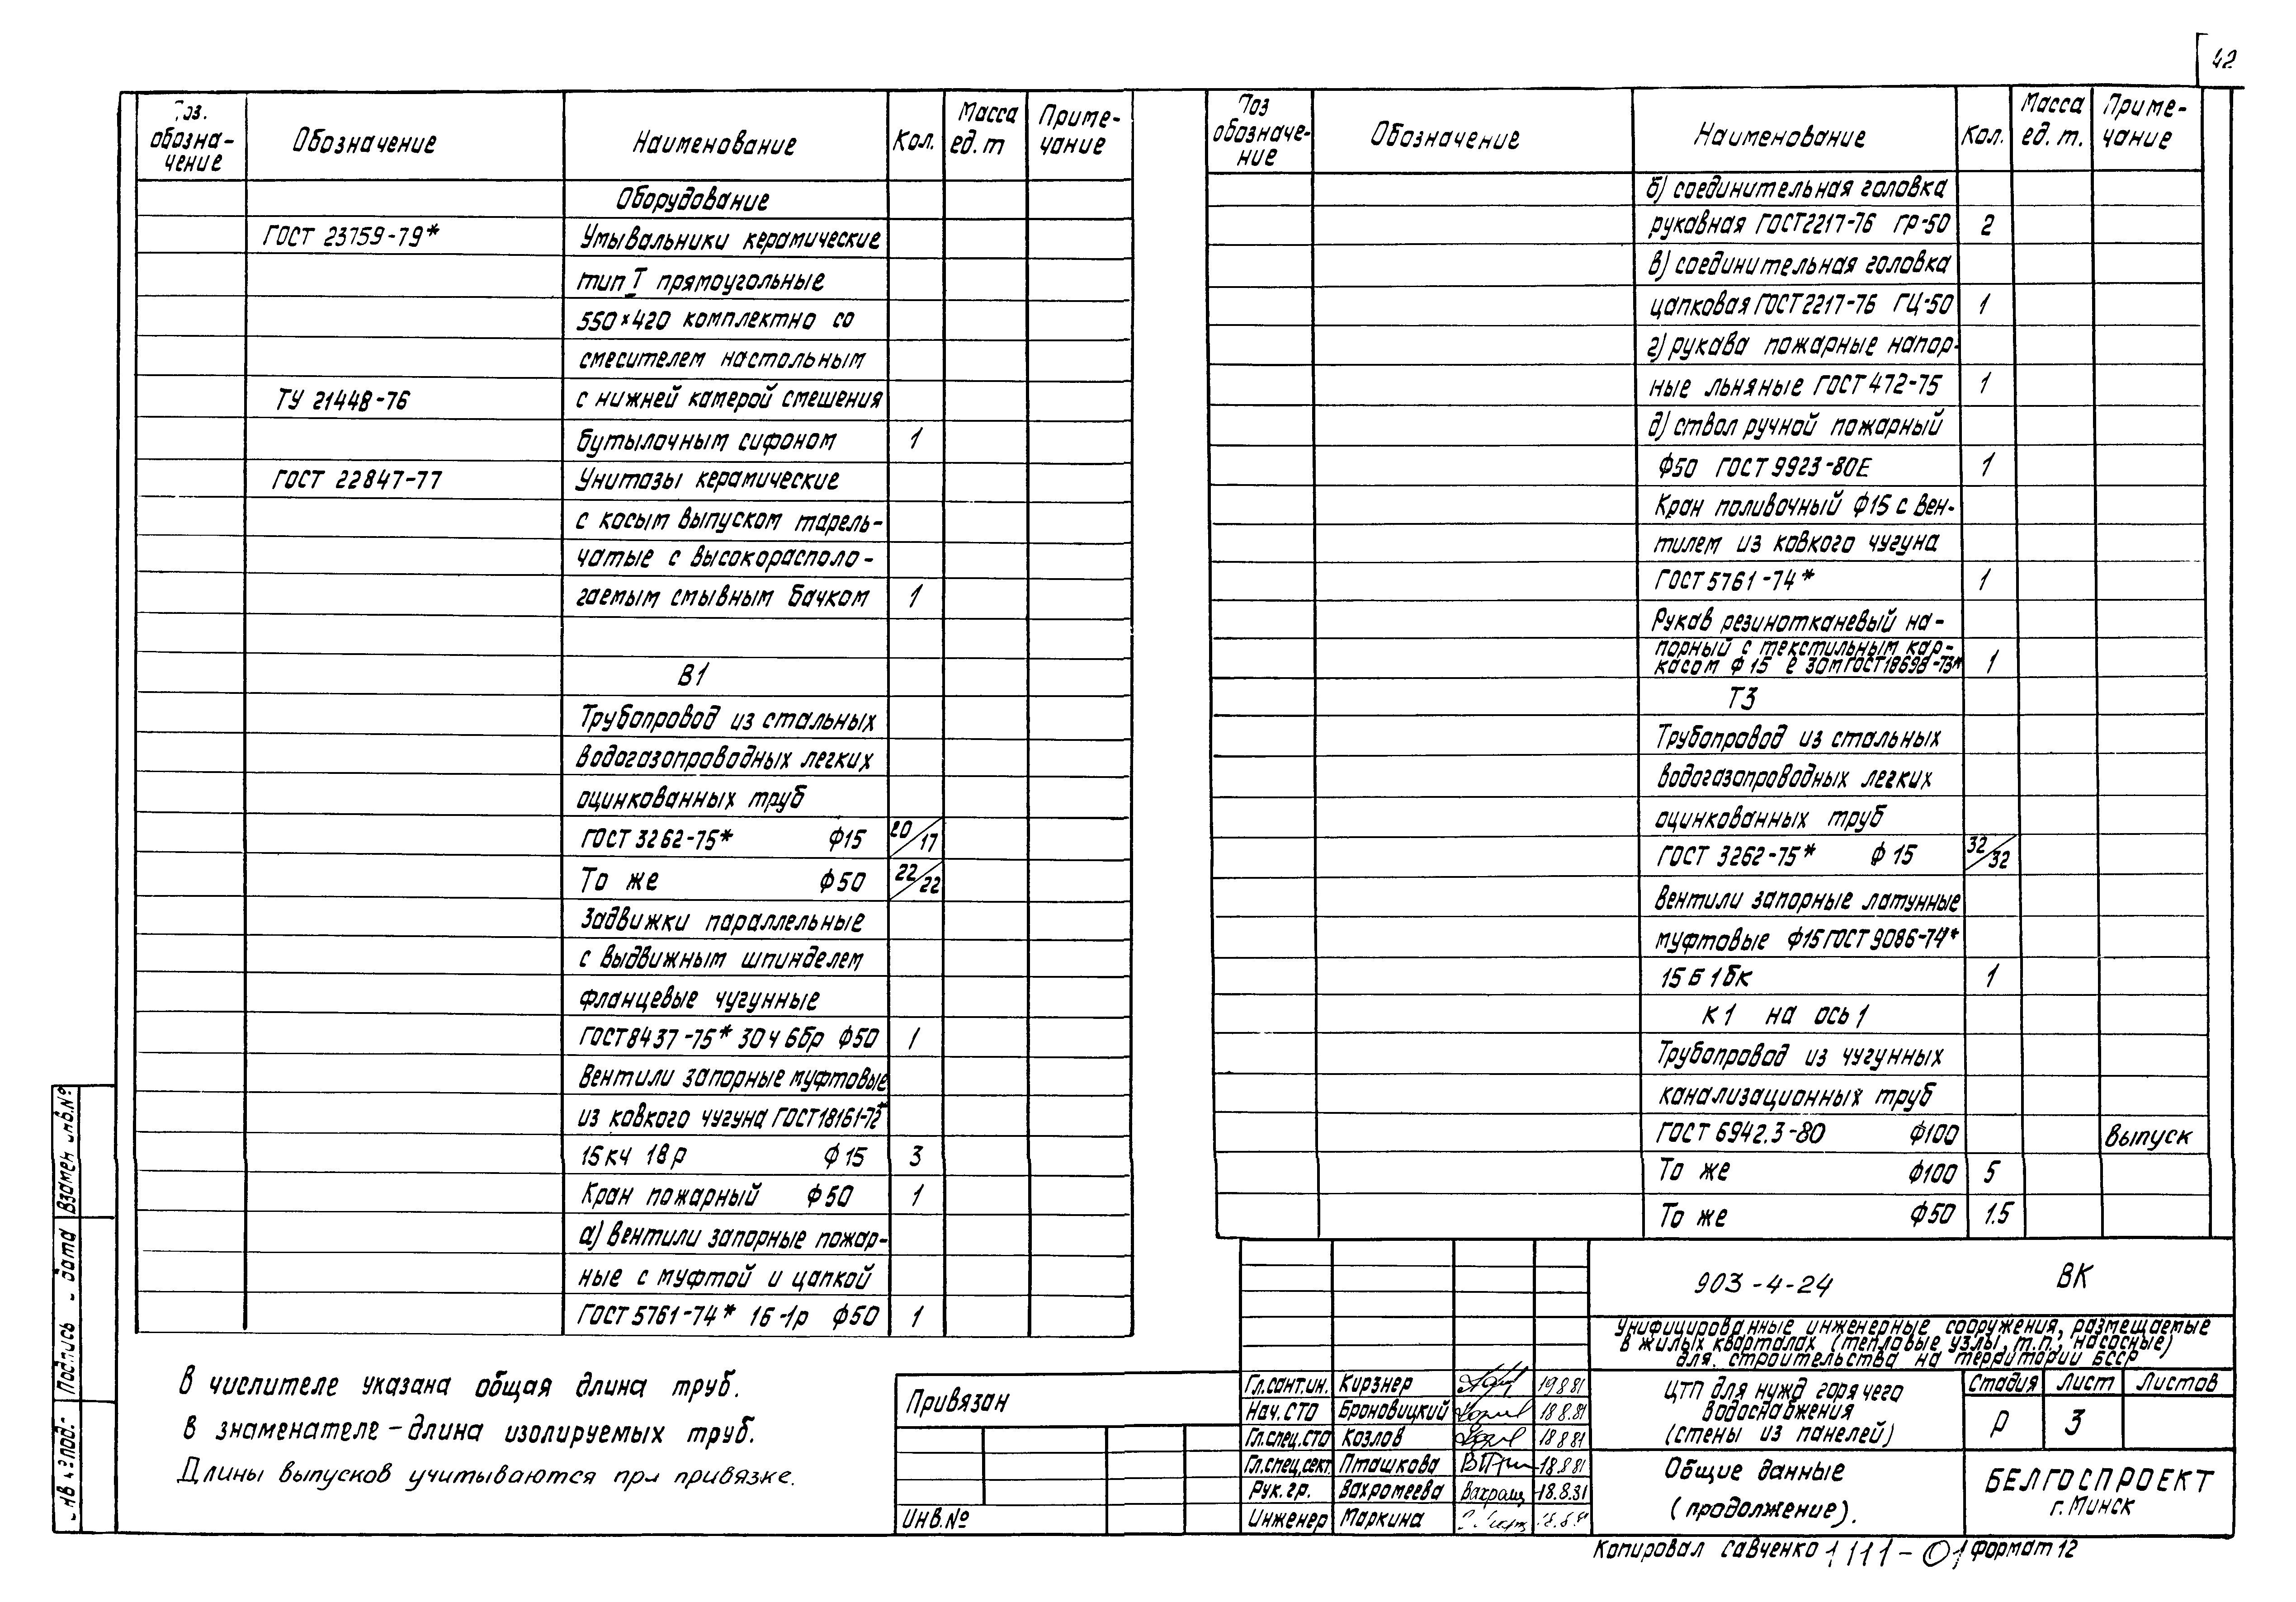 42
Поз. обозна-чение | Обозначение | Наименование | Кол. | Масса ед. т | Приме-чание
Оборудование
ГОСТ 23759-79* | Умывальники керамические
тип I прямоугольные
550×420 комплектно со
смесителем настольным
ТУ 21448-76 | с нижней камерой смешения
бутылочным сифоном | 1
ГОСТ 22847-77 | Унитазы керамические
с косым выпуском тарель-
чатые с высокорасполо-
гаемым смывным бачком | 1
В1
Трубопровод из стальных
водогазопроводных легких
оцинкованных труб
ГОСТ 3262-75* ф15 | 20/17
То же ф50 | 22/22
Задвижки параллельные
с выдвижным шпинделем
фланцевые чугунные
ГОСТ 8437-75* 30ч 6бр ф50 | 1
Вентили запорные муфтовые
из ковкого чугуна ГОСТ18161-72*
15кч 18р ф15 | 3
Кран пожарный ф50 | 1
а) вентили запорные пожар-
ные с муфтой и цапкой
ГОСТ 5761-74* 1б-1р ф50 | 1
В числителе указана общая длина труб.
В знаменателе – длина изолируемых труб.
Длины выпусков учитываются при привязке.
Поз обозначе-ние | Обозначение | Наименование | Кол. | Масса ед. т. | Приме-чание
б) соединительная головка
рукавная ГОСТ2217-76 ГР-50 | 2
в) соединительная головка
цапковая ГОСТ2217-76 ГЦ-50 | 1
г) рукава пожарные напор-
ные льняные ГОСТ 472-75 | 1
д) ствол ручной пожарный
ф50 ГОСТ 9923-80Е | 1
Кран поливочный ф15 с вен-
тилем из ковкого чугуна
ГОСТ 5761-74* | 1
Рукав резинотканевый на-
порный с текстильным кар-
касом ф15 ℓ 30м ГОСТ18698-73* | 1
Т3
Трубопровод из стальных
водогазопроводных легких
оцинкованных труб
ГОСТ 3262-75* ф15 | 32/32
Вентили запорные латунные
муфтовые ф15 ГОСТ 9086-74*
15 Б 1бк | 1
К1 на ось 1
Трубопровод из чугунных
канализационных труб
ГОСТ 6942.3-80 ф100 | выпуск
То же ф100 | 5
То же ф50 | 1.5
903-4-24 ВК
Унифицированные инженерные сооружения, размещаемые
в жилых кварталах (тепловые узлы, т.п., насосные)
для строительства на территории БССР
Гл.сант.ин. Кирзнер 19 8 81
Нач. СТО Броновицкий 18 8.81
Гл.спец.сто Козлов 18 8 81
Гл.спец.сект. Пташкова 18.8 81
Рук. гр. Вахромеева 18.8.81
Инженер Маркина
ЦТП для нужд горячего
водоснабжения
(стены из панелей)
Стадия Лист Листов
Р 3
Общие данные
(продолжение).
БЕЛГОСПРОЕКТ
г. Минск
Привязан
Инв.№
Взамен инв.№
Подпись дата
Инв № подл.
Копировал Савченко 1111-01 формат 12